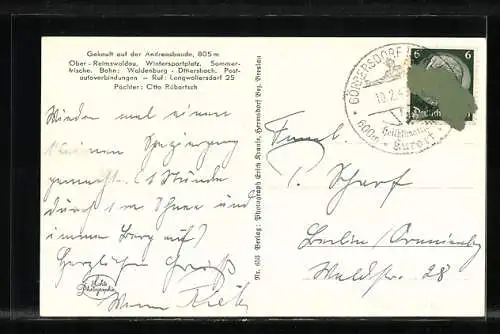 Gekauft auf der Andreasbaude, 805 m
Ober-Reimswaldau, Wintersportplatz, Sommer-
frische. Bahn: Waldenburg - Dittersbach, Post-
autoverbindungen – Ruf: Langwaltersdorf 25
Pächter: Otto Röbartsch
Wieder mal einen
kleinen Spaziergang
gemacht. (1 Stunde
durch 1 m Schnee und
immer Berg auf)
Herzlichen Gruß
Echte
Photographie
Nr. 603 Verlag: Photograph Erich Krantz, Herrnsdorf Bez. Breslau
GÖRBERSDORF
10.2.4
600m
Kurort
6 6
Deutsches
Famil.
P. Scharf
Berlin Oranienbg
Waldstr. 28